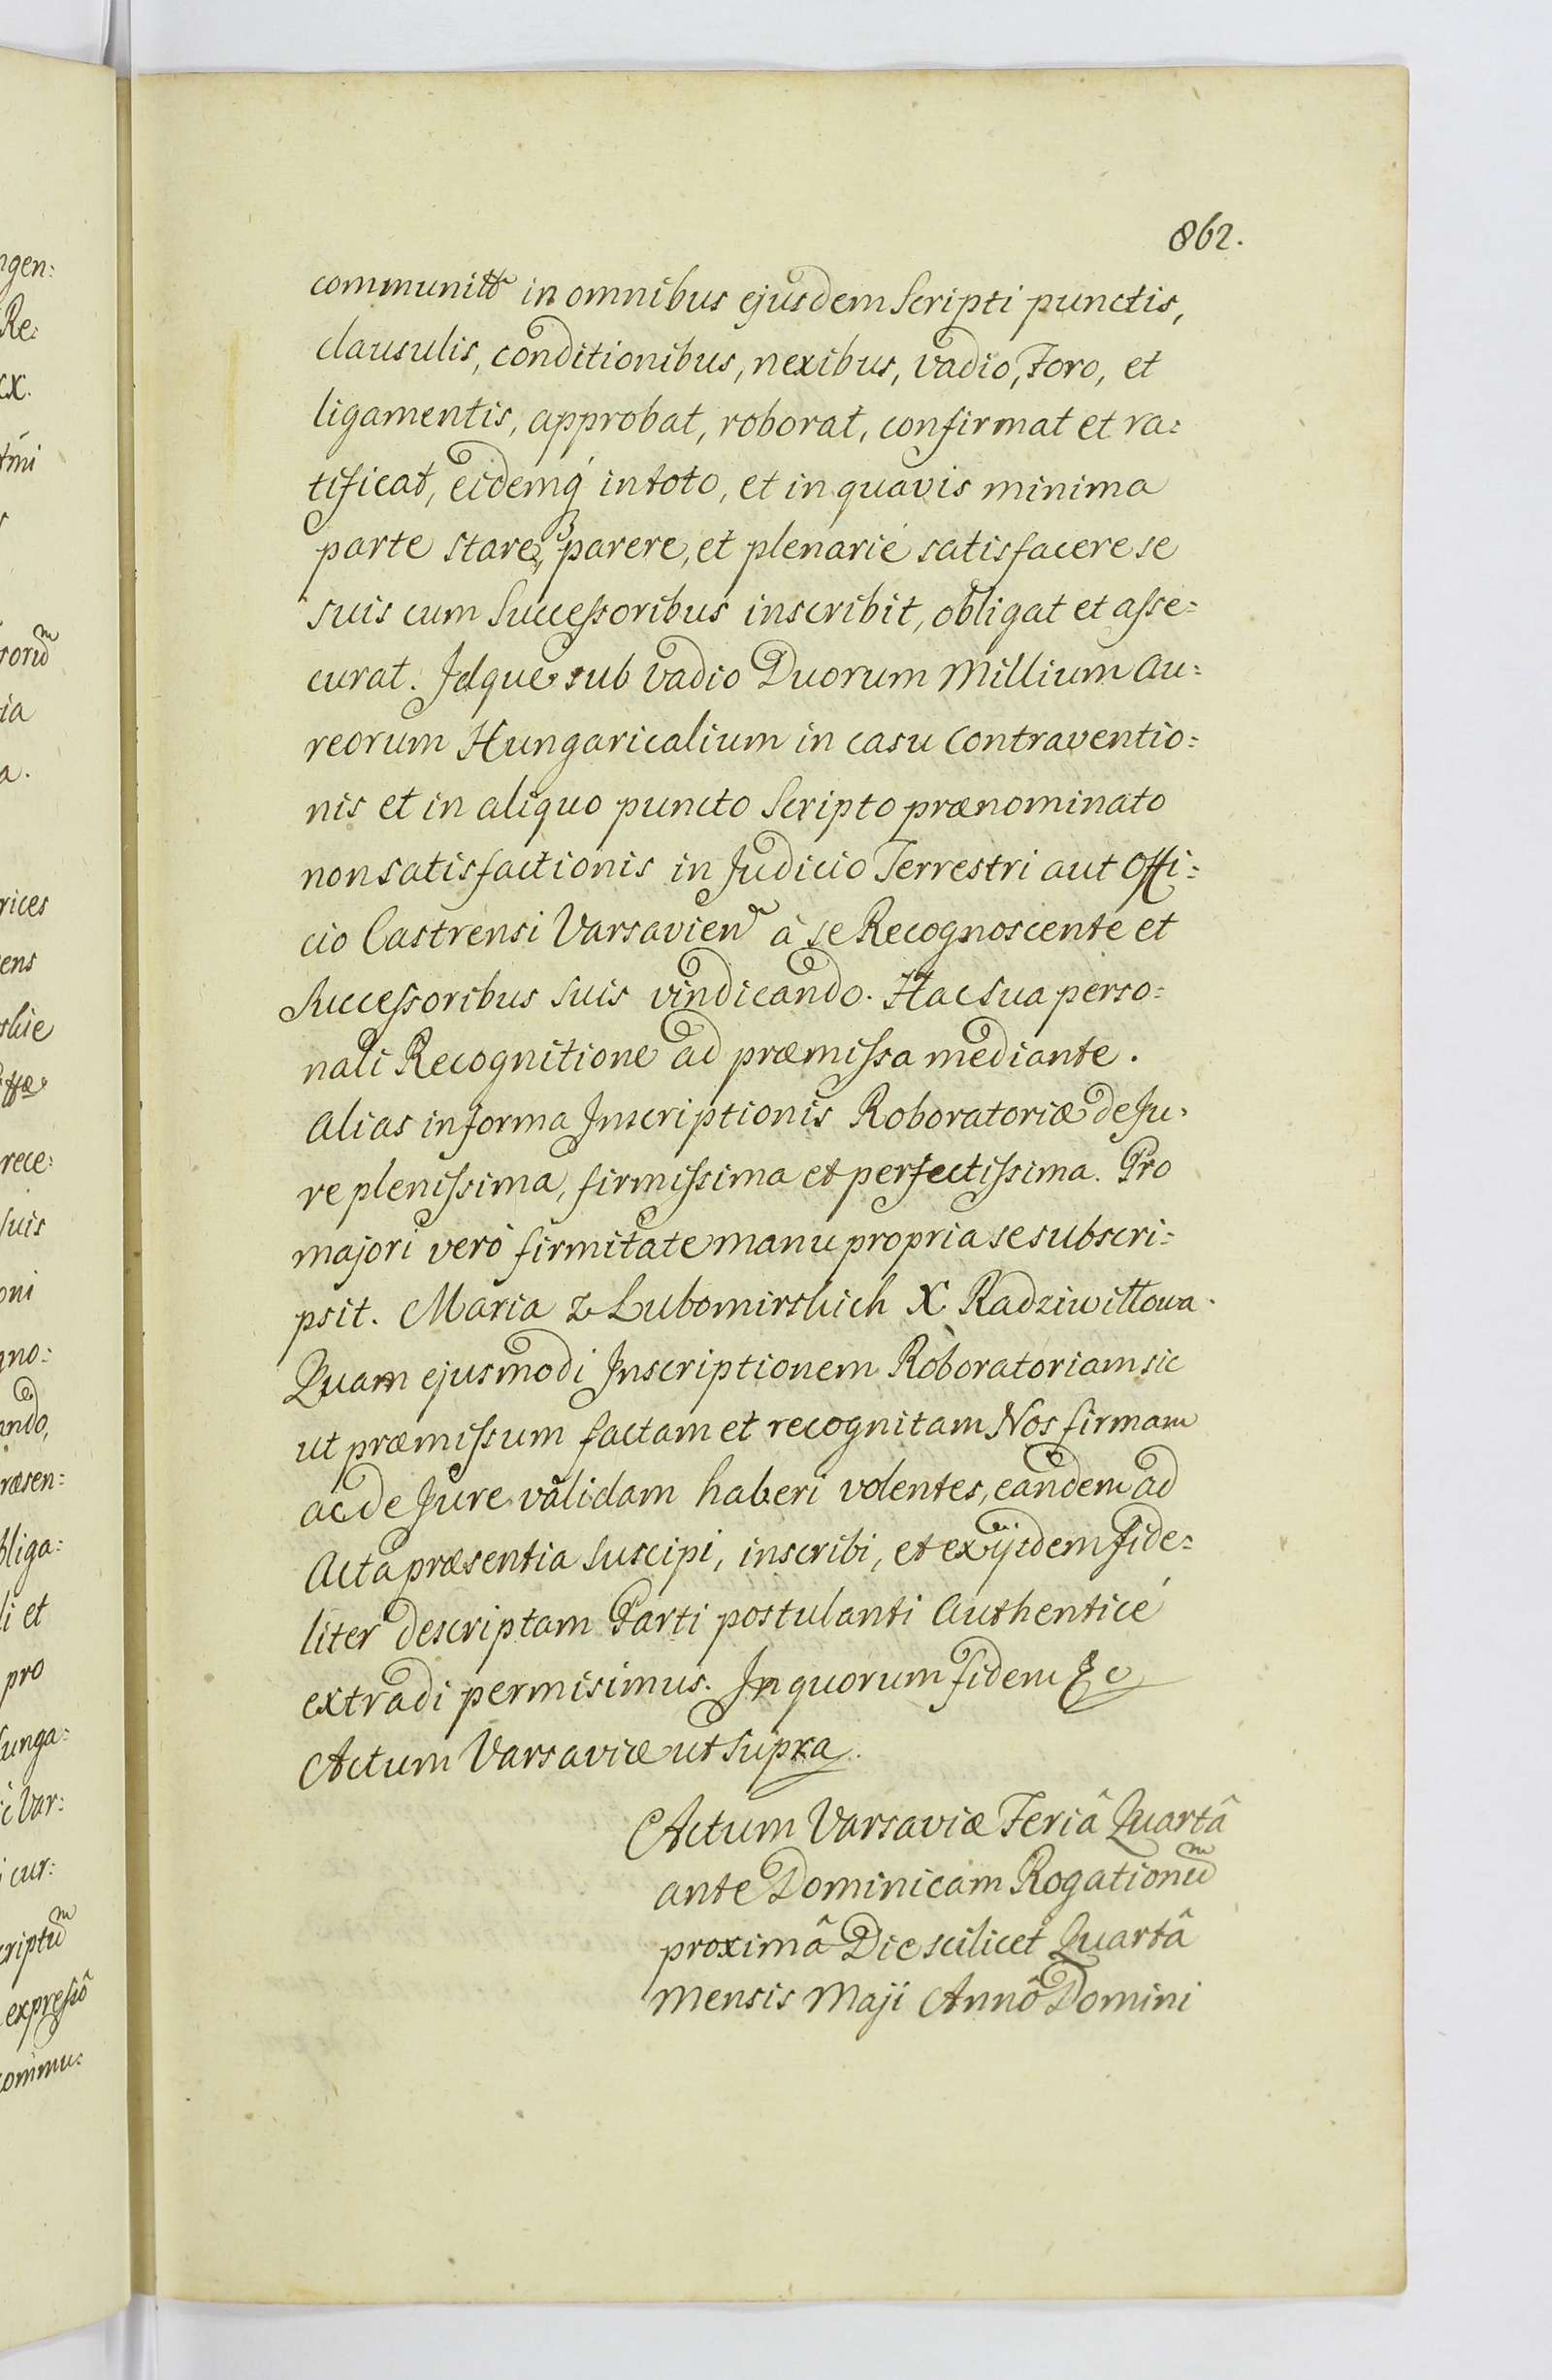 862.
communitt in omnibus ejusdem Scripti punctis,
clausulis, conditionibus, nexibus, vadio, Foro, et
ligamentis, approbat, roborat, confirmat et ra:
tificat, eidemq́ in toto, et in quavis minima
parte stare, parere, et plenarié satisfacere se
suis cum Successoribus inscribit, obligat et asse:
curat. Idque sub vadio Duorum Millium Au:
reorum Hungaricalium in casu Contraventio:
nis et in aliquo puncto Scripto prænominato
non satisfactionis in Judicio Terrestri aut Offi:
cio Castrensi Varsavien à se Recognoscente et
Successoribus Suis vindicando. Hac Sua perso:
nali Recognitione ad præmissa mediante.
Alias in forma Inscriptionis Roboratoriæ de Ju:
re plenissima, firmissima et perfectissima. Pro
majori veró firmitate manu propria se subscri:
psit. Maria z Lubomirskich X. Radziwiłłowa.
Quam ejusmodi Inscriptionem Roboratoriam sic
ut præmissum factam et recognitam Nos firmam
ac de Jure validam haberi volentes, eandem ad
Acta præsentia Suscipi, inscribi, et ex ijsdem fide:
liter descriptam Parti postulanti Authenticé
extradi permisimus. In quorum fidem &c
Actum Varsaviæ ut Supra.
Actum Varsaviæ Feriâ Quartâ
ante Dominicam Rogationũ
proximâ Die scilicet Quartâ
Mensis Maji Annô Domini
ngen:
Re:
cx.
tmi
ia
a.
rices
ens
skie
rece:
suis
oni
gno:
ando,
ræsen:
bliga:
li et
pro
unga:
Var:
cur:
criptũ
expressô
commu: